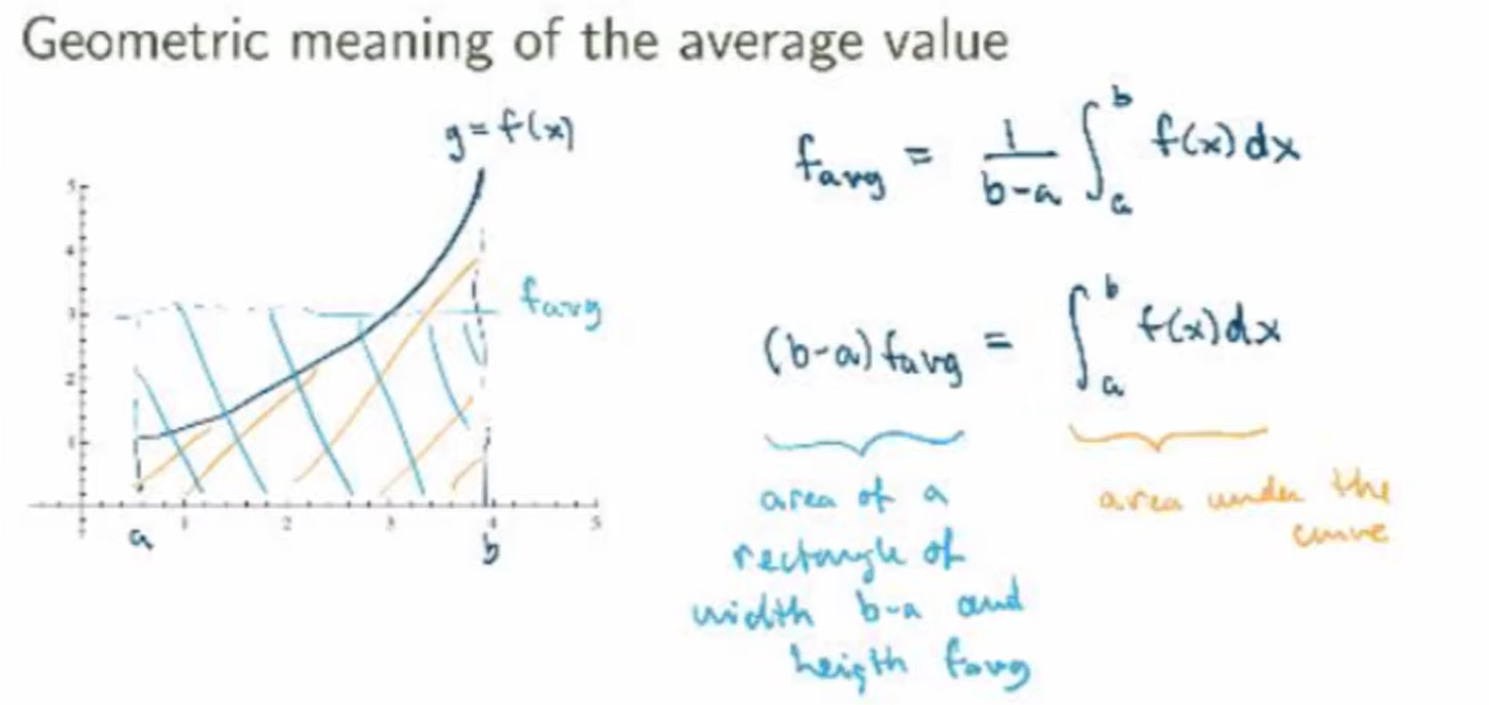 Geometric meaning of the average value
y = f(x)
f_avg = 1/(b-a) ∫_a^b f(x) dx
5
4
f_avg
3
(b-a) f_avg = ∫_a^b f(x) dx
2
1
area of a
rectangle of
width b-a and
heigth f_avg
area under the
curve
1 2 3 4 5
a b